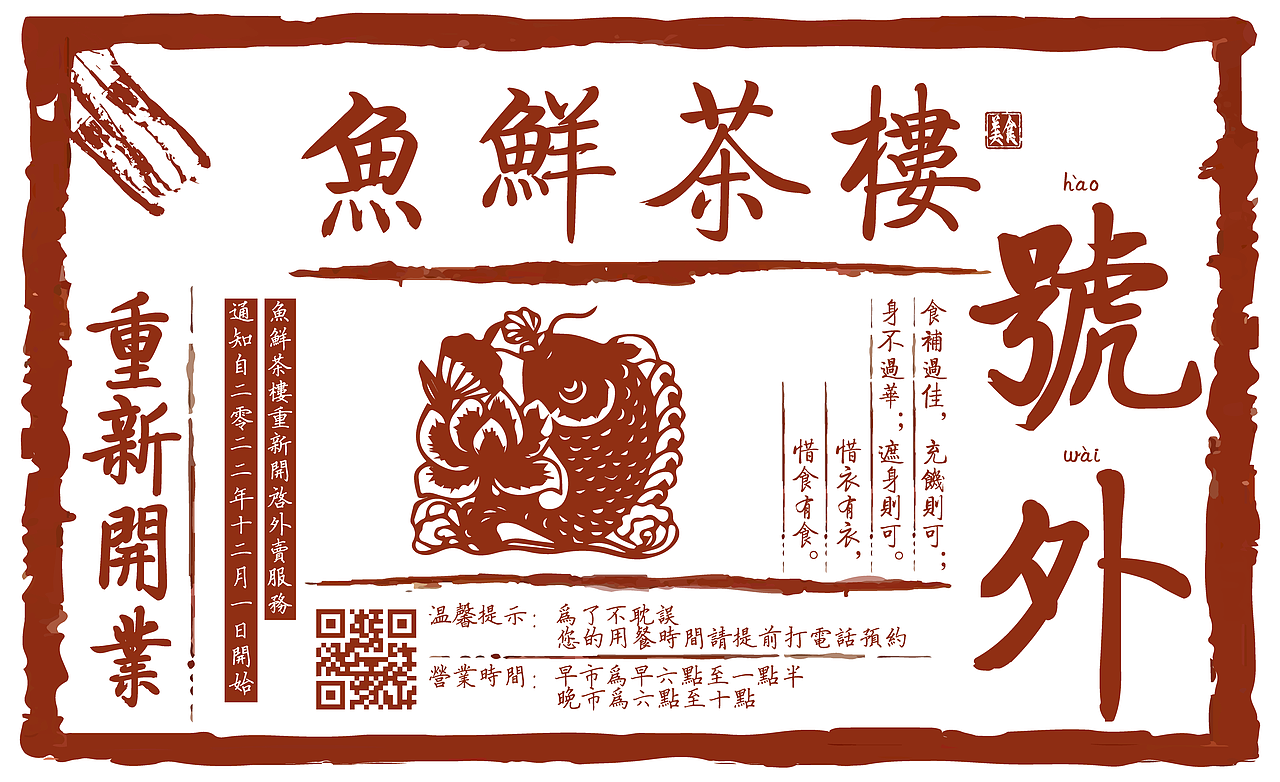 魚鮮茶樓
美食
hào
號
wài
外
食補過佳，充饑則可；
身不過華；遮身則可。
惜衣有衣，
惜食有食。
魚鮮茶樓重新開啓外賣服務
通知自二零二二年十二月一日開始
重新開業
温馨提示：為了不耽誤
您的用餐時間請提前打電話預約
營業時間：早市為早六點至一點半
晚市為六點至十點